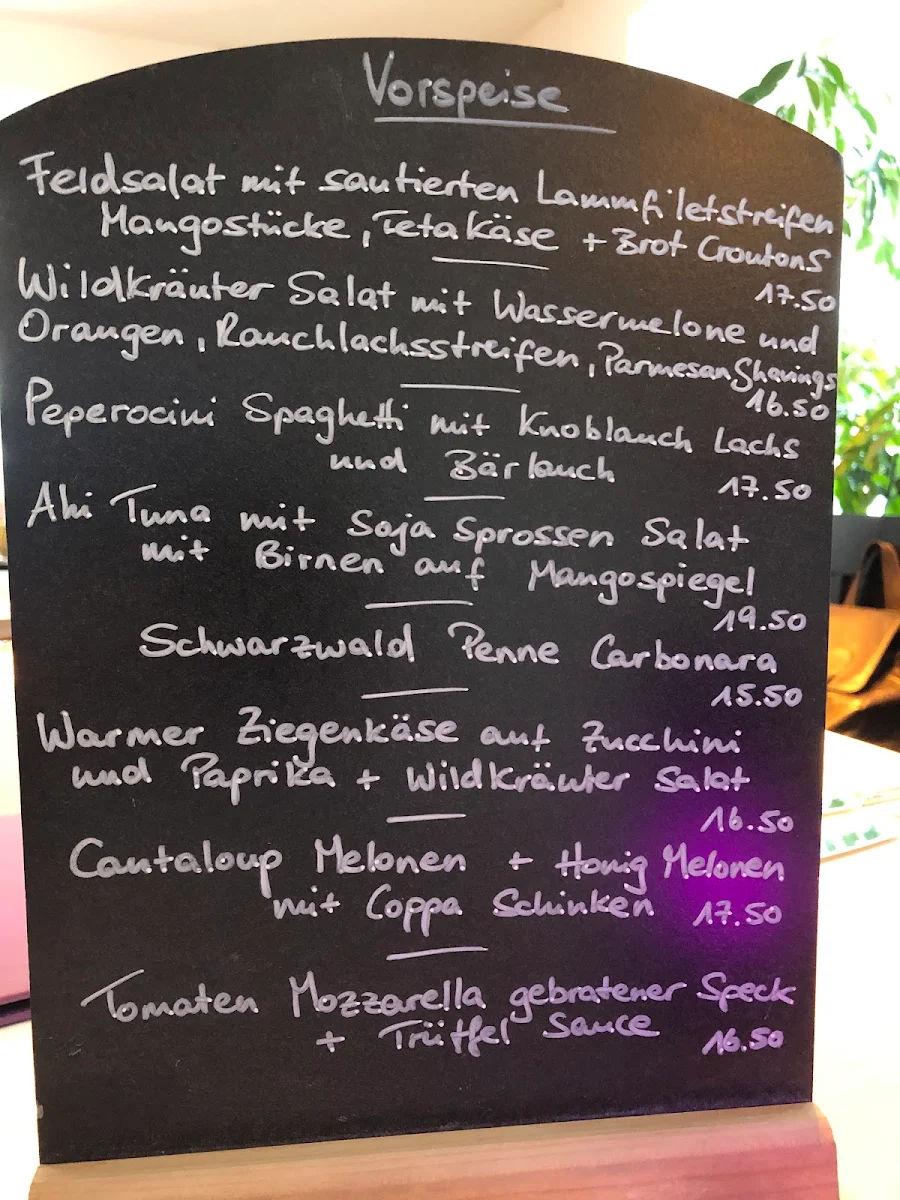 Vorspeise
Feldsalat mit sautierten Lammfiletstreifen
Mangostücke, Feta Käse + Brot Croutons
17.50
Wildkräuter Salat mit Wassermelone und
Orangen, Rauchlachsstreifen, Parmesan Shavings
16.50
Peperocini Spaghetti mit Knoblauch Lachs
und Bärlauch
17.50
Ahi Tuna mit Soja Sprossen Salat
mit Birnen auf Mangospiegel
19.50
Schwarzwald Penne Carbonara
15.50
Warmer Ziegenkäse auf Zucchini
und Paprika + Wildkräuter Salat
16.50
Cantaloup Melonen + Honig Melonen
mit Coppa Schinken 17.50
Tomaten Mozzarella gebratener Speck
+ Trüffel Sauce 16.50